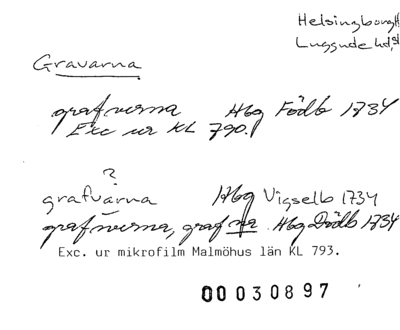 Helsingborg H
Luggude hd, sk
Gravarna
grafwerna Hbg Födb 1734
Exc ur KL 790.
?
grafvarna Hbg Vigselb 1734
grafwerna, grafna Hbg Dödb 1734
Exc. ur mikrofilm Malmöhus län KL 793.
00030897